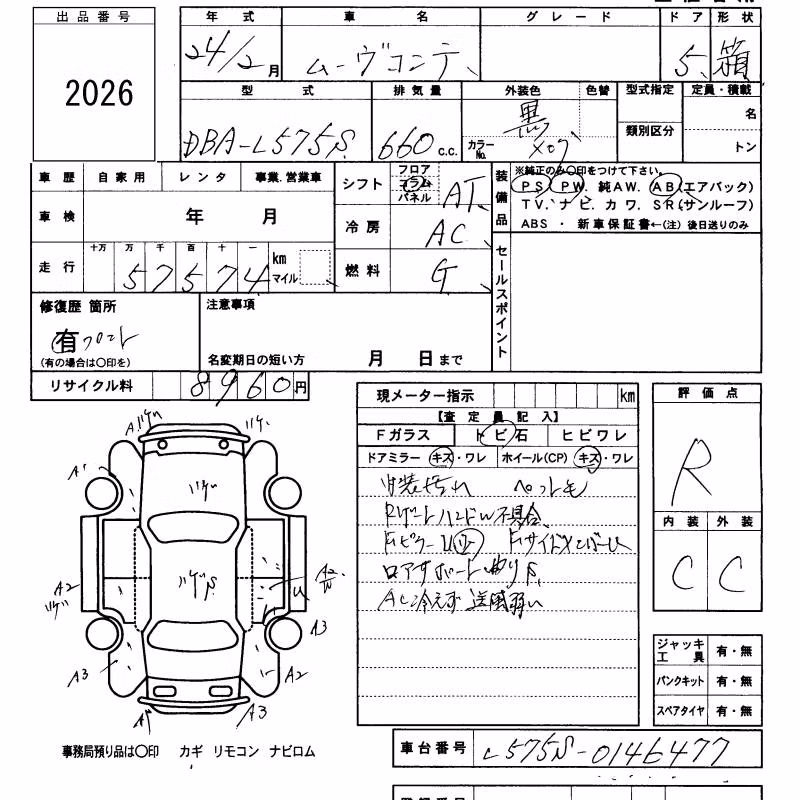 出品番号
2026
年式 車名 グレード ドア 形状
24/2月 ムーヴコンテ 5 箱
型式 排気量 外装色 色替 型式指定 定員・積載
DBA-L575S 660 c.c. 黒 カラーNo. X07 類別区分 名
トン
車歴 自家用 レンタ 事業.営業車
シフト フロア コラム パネル AT
装備品 ※純正のみ〇印をつけて下さい。
PS PW. 純AW. AB(エアバック)
TV. ナビ. カワ. SR(サンルーフ)
ABS ・ 新車保証書←(注) 後日送りのみ
車検 年 月
冷房 AC
走行 十万 万 千 百 十 一
57574 km マイル
燃料 G
セールスポイント
修復歴 箇所
有 フロント
(有の場合は〇印を)
注意事項
名変期日の短い方 月 日まで
リサイクル料 8960円
現メーター指示 km
【査定員記入】
Fガラス トビ石 ヒビワレ
ドアミラー キズ・ワレ ホイール(CP) キズ・ワレ
内装汚れ ペット毛
Rゲートハンドル不具合
ロアサポート曲り
AC冷えず 送風弱い
評価点
R
内装 外装
C C
ジャッキ工具 有・無
パンクキット 有・無
スペアタイヤ 有・無
A1
A2
A2
A3
A3
A2
A3
事務局預り品は〇印 カギ リモコン ナビロム
車台番号 L575S-0146477